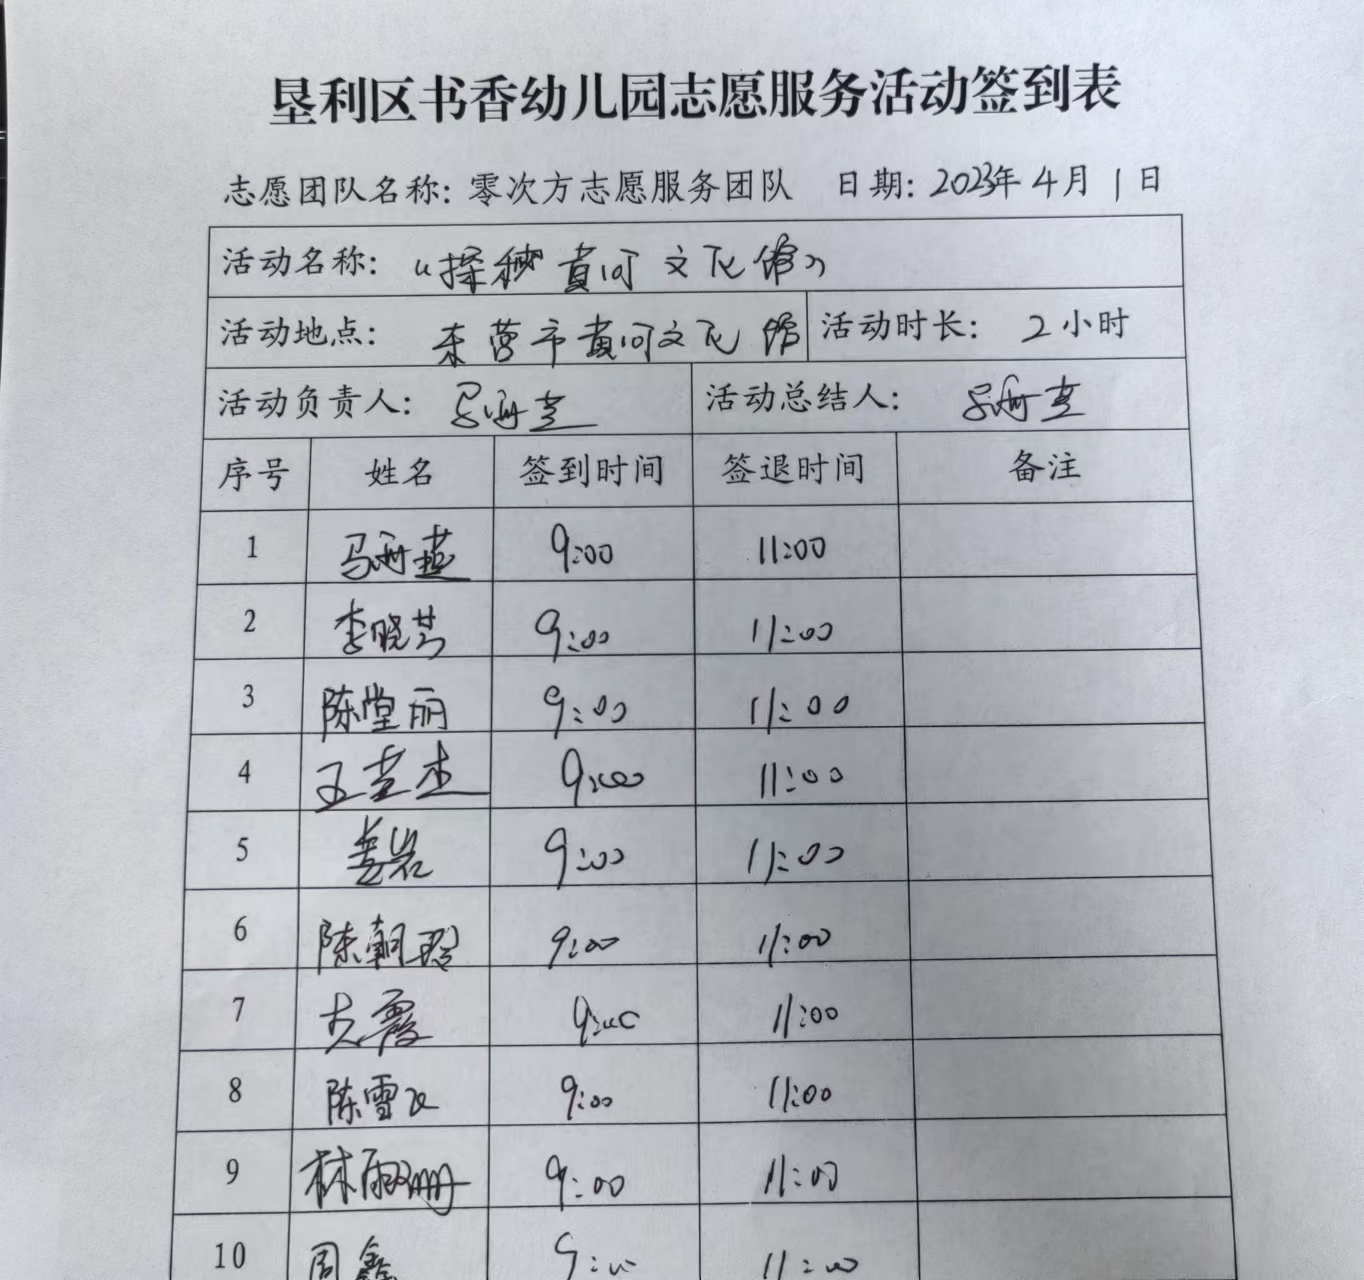 垦利区书香幼儿园志愿服务活动签到表
志愿团队名称: 零次方志愿服务团队 日期: 2023年 4月 1日
活动名称: “探秘黄河文化馆”
活动地点: 东营市黄河文化馆 活动时长: 2小时
活动负责人: 活动总结人:
序号 姓名 签到时间 签退时间 备注
1 马丽燕 9:00 11:00
2 李晓芳 9:00 11:00
3 陈堂丽 9:00 11:00
4 王 杰 9:00 11:00
5 姜岩 9:00 11:00
6 陈朝 9:00 11:00
7 霞 9:00 11:00
8 陈雪 9:00 11:00
9 林 珊 9:00 11:00
10 周鑫 9:00 11:00